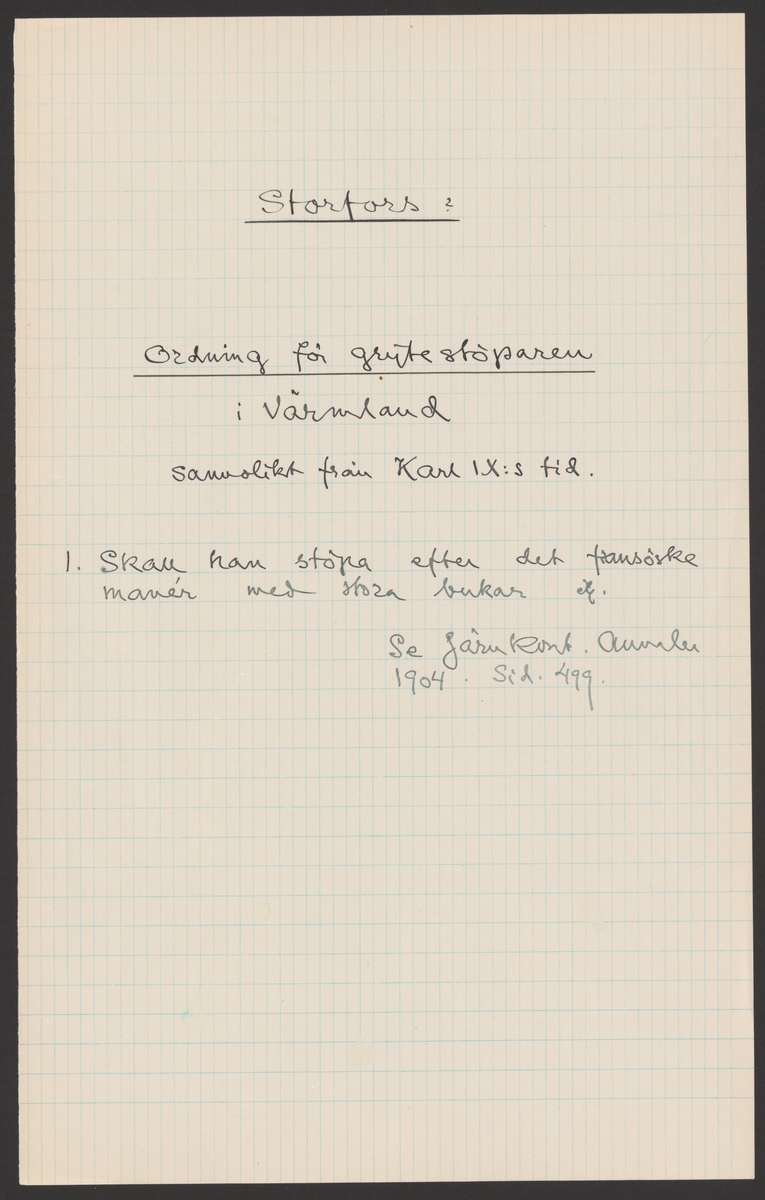 Storfors ?
Ordning för grytestöparen
i Värmland
sannolikt från Karl IX:s tid.
1. Skall han stöpa efter det fransöske
manér med stora bukar
Se Järnkont. Annaler
1904. Sid. 499.